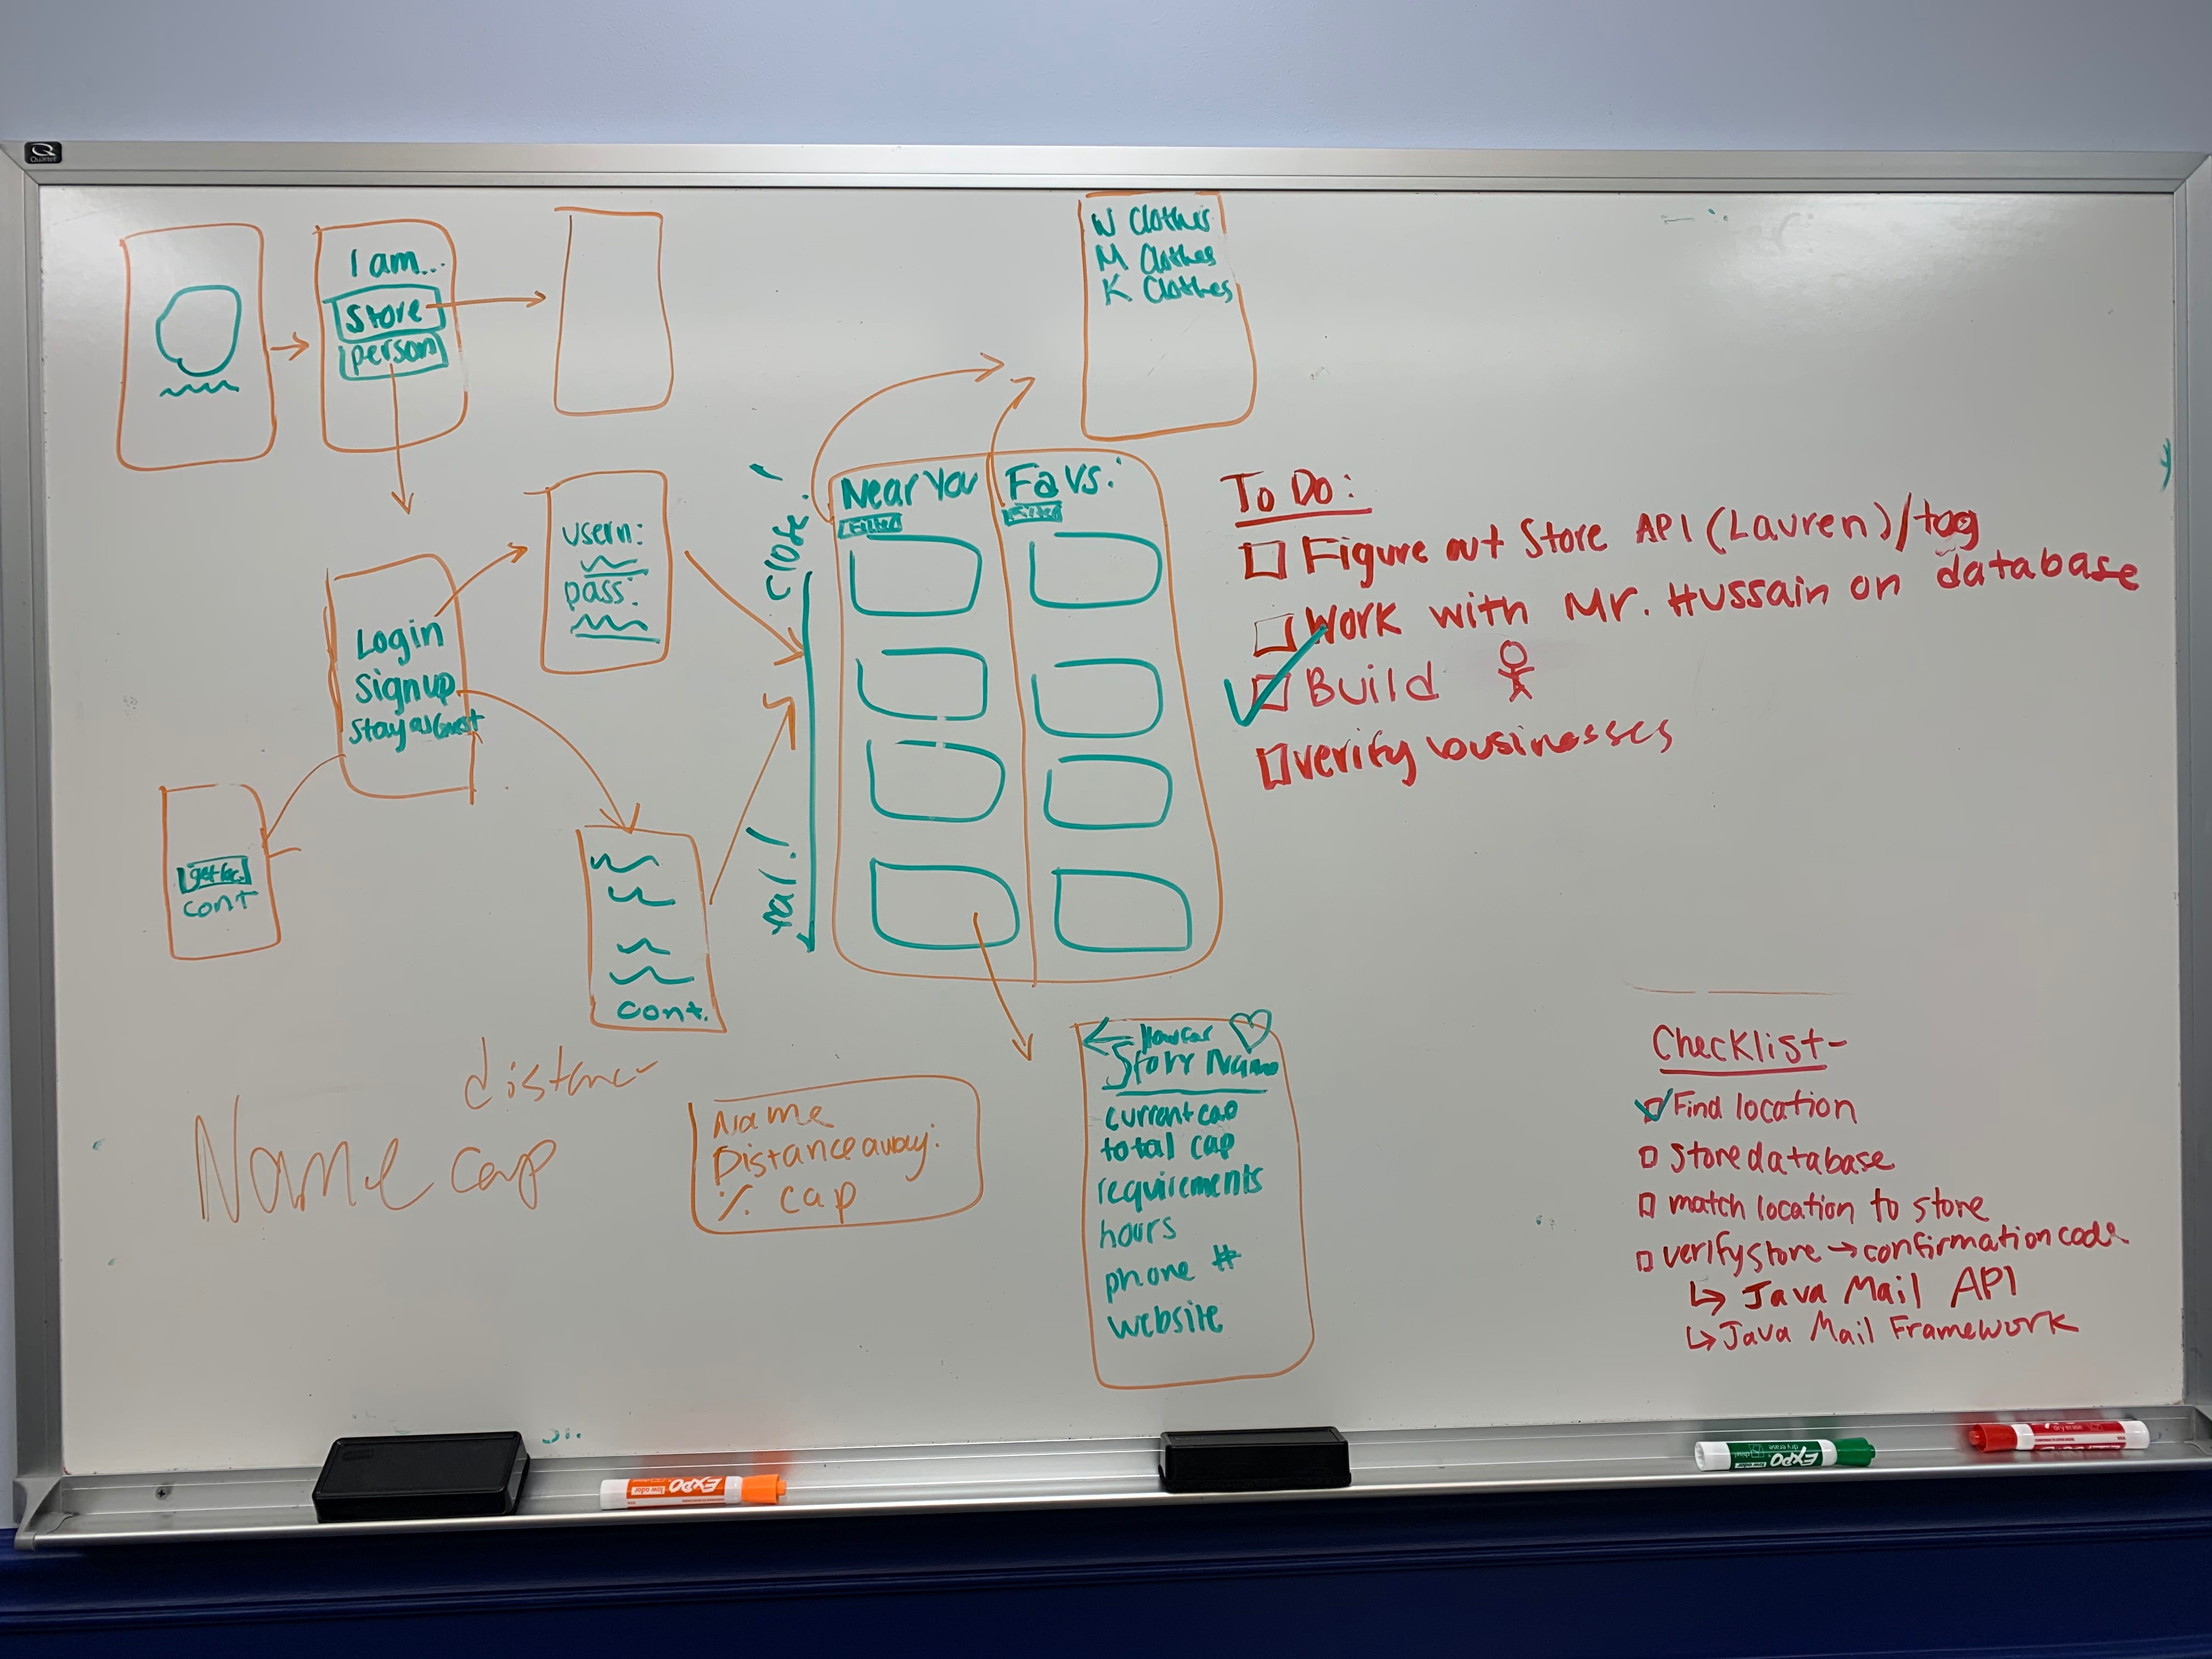 Quartet
I am...
Store
person
W Clothes
M Clothes
K Clothes
usern:
pass:
Login
Signup
Stay as Guest
get loc.
cont
cont.
close!
far!
Near You
Filter
Favs:
Filter
To Do:
Figure out Store API (Lauren)/tag
Work with Mr. Hussain on database
Build
verify businesses
distance
Name cap
Name
Distance away:
% cap
How far
Store Name
current cap
total cap
requirements
hours
phone #
website
Checklist-
Find location
Store database
match location to store
verify store → confirmation code
↳ Java Mail API
↳ Java Mail Framework
EXPO
low odor
EXPO
low odor
dry erase